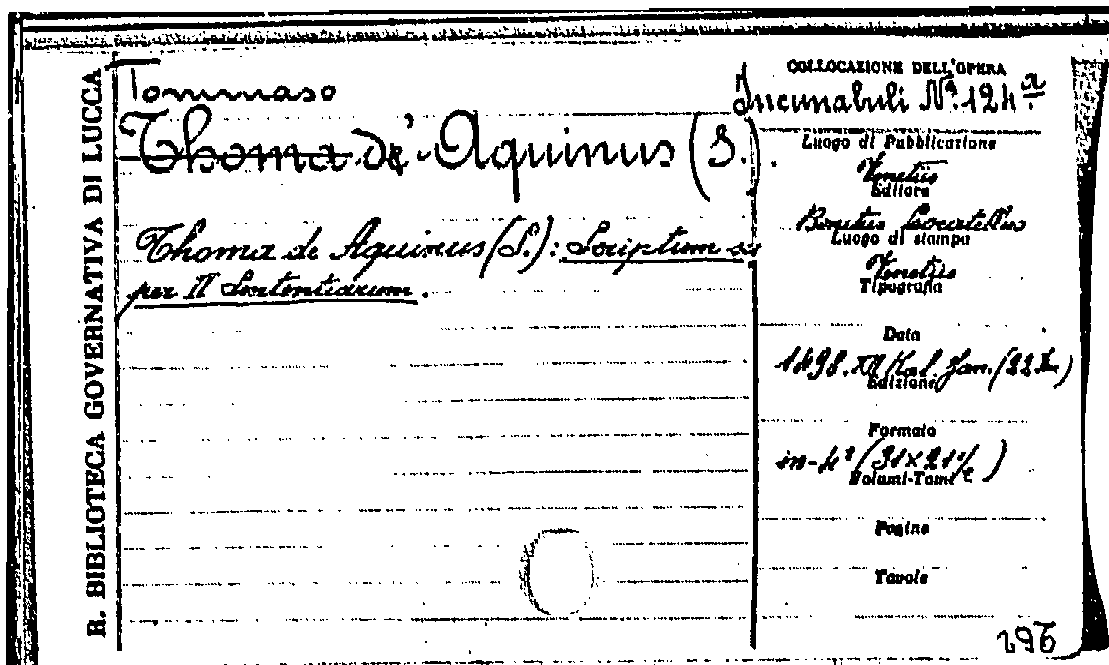 R. BIBLIOTECA GOVERNATIVA DI LUCCA
Tommaso
Thoma de' Aquinus (S.).
Thoma de Aquinus (S.): Scriptum su
per II Sententiarum.
COLLOCAZIONE DELL'OPERA
Incunabuli N.º 124 a
Luogo di Pubblicazione
Venetiis
Editore
Bonetus Locatellus
Luogo di stampa
Venetiis
Tipografia
Data
1498. XI Kal. Jan. (22 )
Edizione
Formato
in-4º (31×21½)
Volumi-Tomi
Pagine
Tavole
296